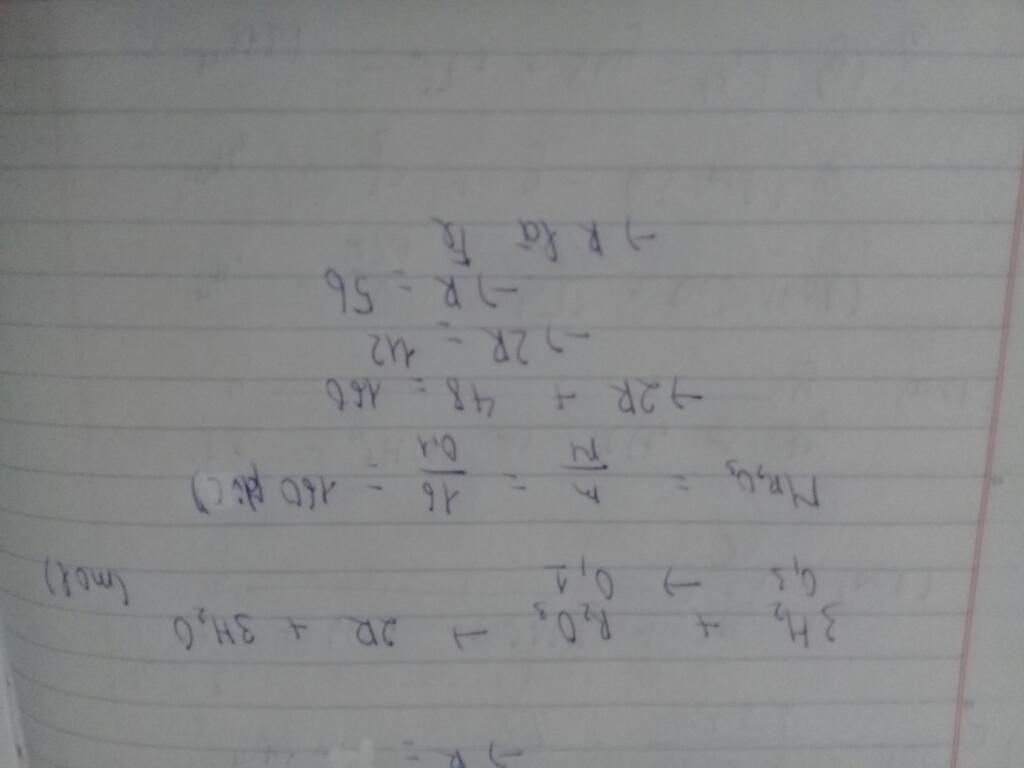 → R =
3H₂ + R₂O₃ → 2R + 3H₂O
0,3 → 0,1 (mol)
M R₂O₃ = m/M = 16/0,1 = 160 (đvC)
→ 2R + 48 = 160
→ 2R = 112
→ R = 56
→ R là Fe